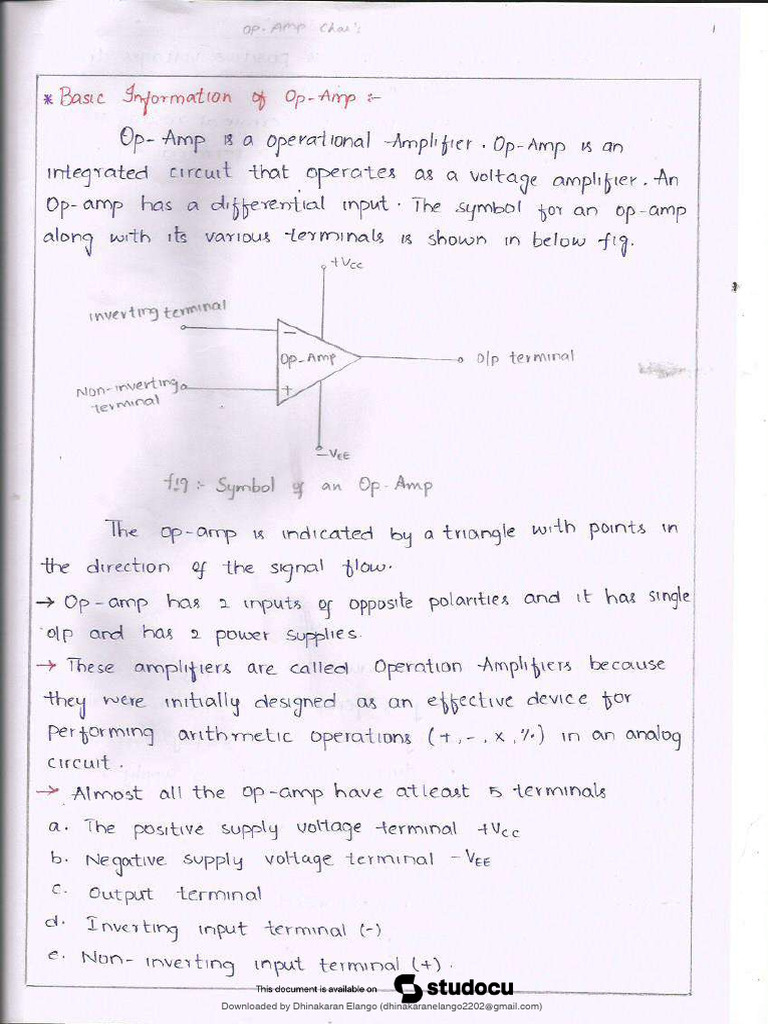 OP-AMP Char's
1
* Basic Information of Op-Amp :-
Op-Amp is a operational Amplifier. Op-Amp is an
integrated circuit that operates as a voltage amplifier. An
Op-amp has a differential input. The symbol for an op-amp
along with its various terminals is shown in below fig.
+VCC
inverting terminal
−
Op-Amp
o/p terminal
Non-inverting
terminal
+
-VEE
fig :- Symbol of an Op-Amp
The op-amp is indicated by a triangle with points in
the direction of the signal flow.
→ Op-amp has 2 inputs of opposite polarities and it has single
o/p and has 2 power supplies.
→ These amplifiers are called Operation Amplifiers because
they were initially designed as an effective device for
performing arithmetic operations (+, -, x, %) in an analog
circuit.
→ Almost all the op-amp have atleast 5 terminals
a. The positive supply voltage terminal +VCC
b. Negative supply voltage terminal -VEE
c. Output terminal
d. Inverting input terminal (-)
e. Non-inverting input terminal (+).
This document is available on studocu
Downloaded by Dhinakaran Elango (dhinakaranelango2202@gmail.com)